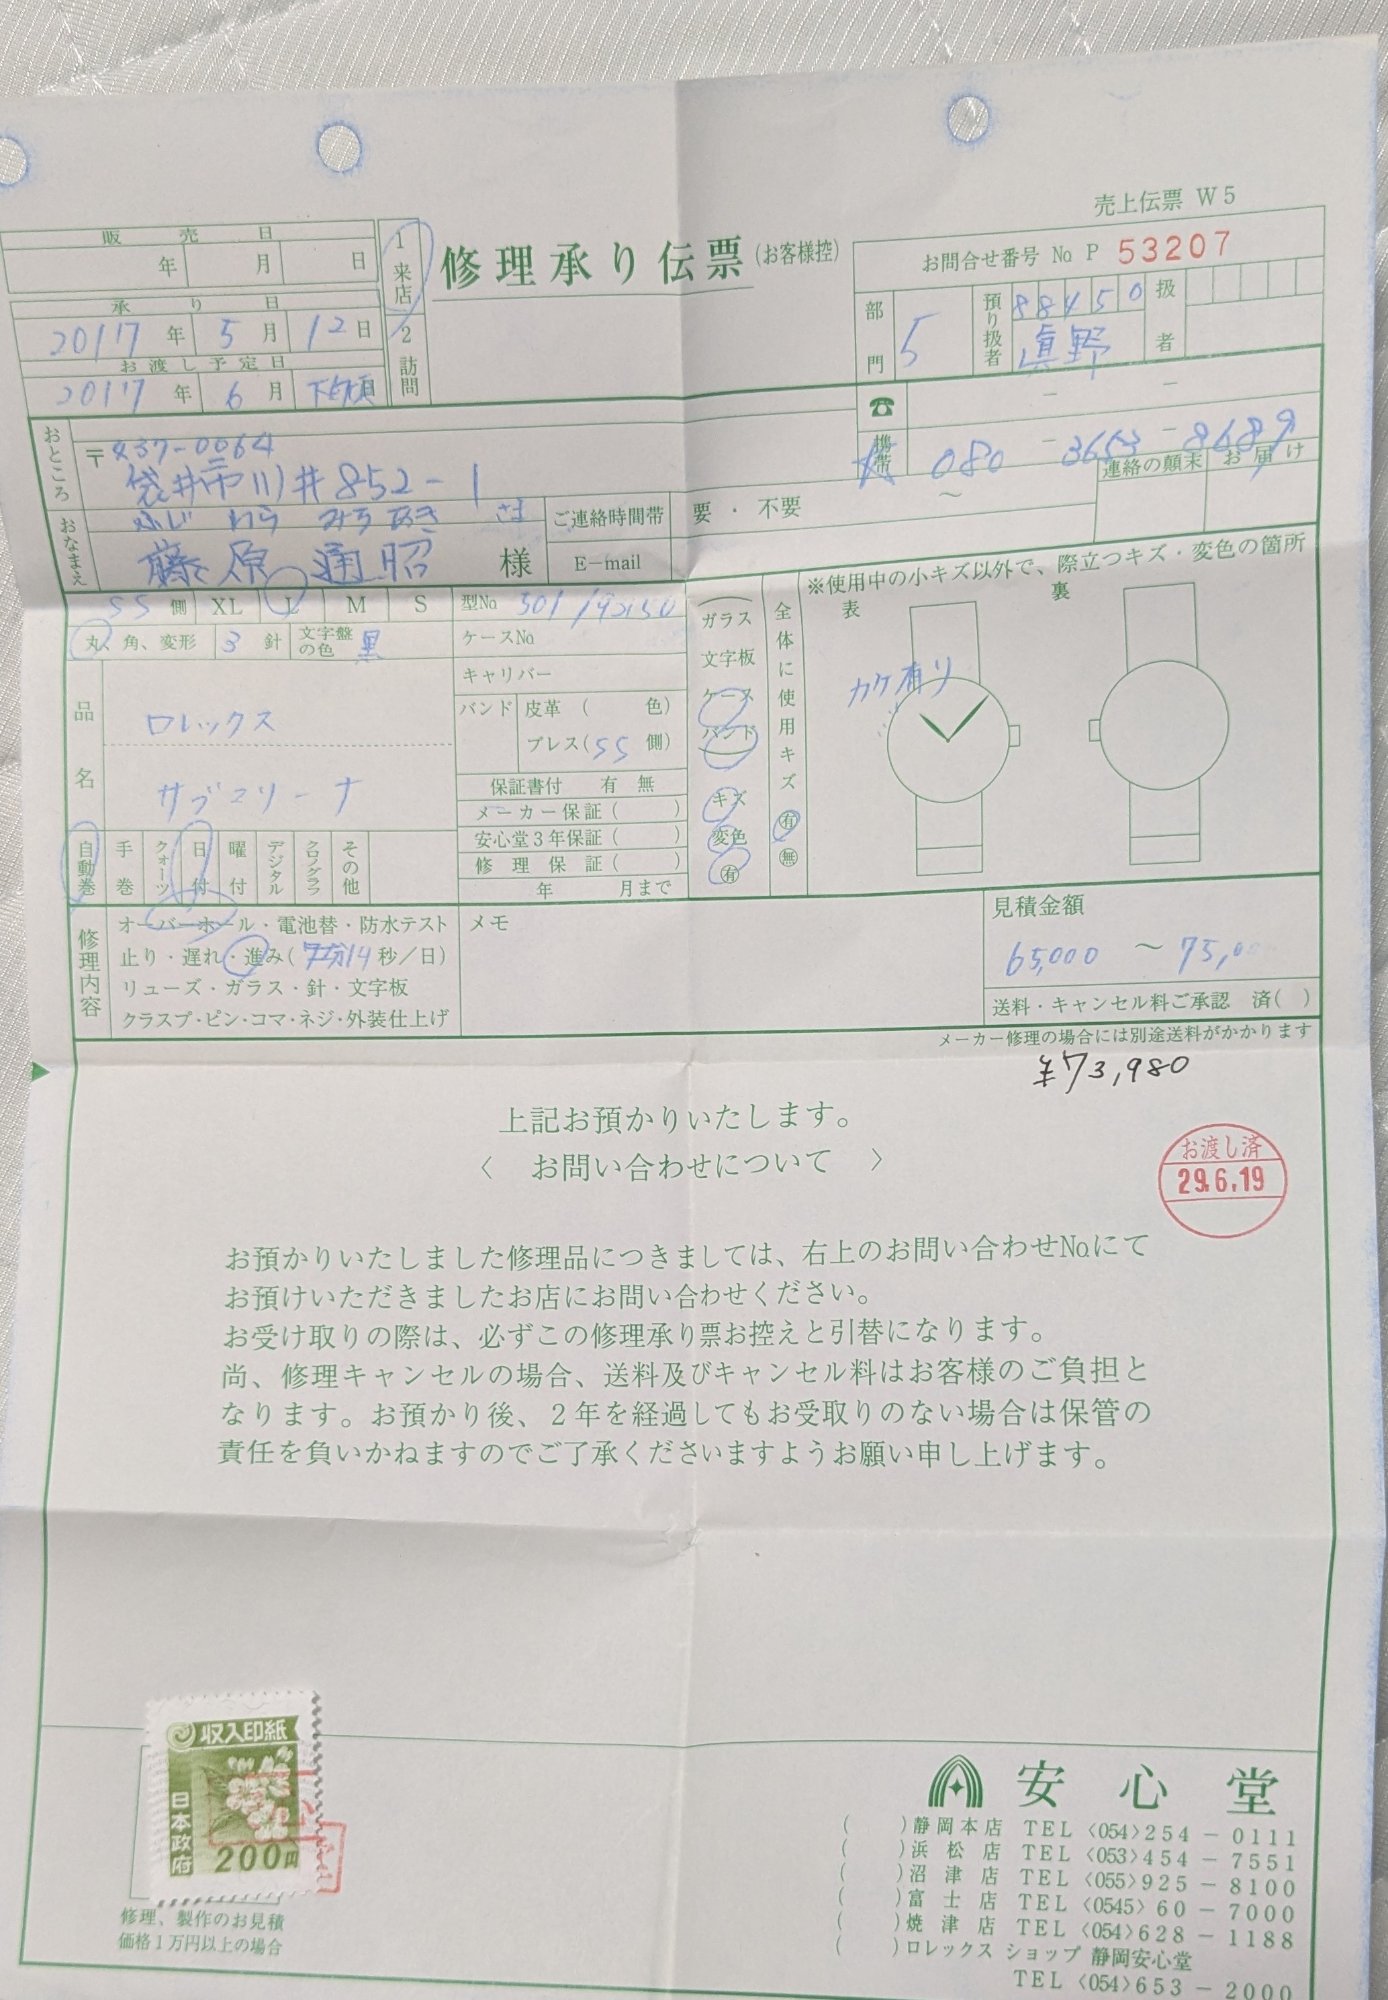 売上伝票 W5
修理承り伝票(お客様控)
お問合せ番号 № P 53207
販売日
年 月 日
承り日
2017年 5月 12日
お渡し予定日
2017年 6月 下旬頃
1 来店
2 訪問
部門 5
預り扱者 88450 眞野
扱者
☎ － －
携帯 080 － 3653 － 8689
おところ
〒437-0064
袋井市川井852-1
おなまえ
ふじ わら みち あき さま
藤原 通昭 様
ご連絡時間帯 要・不要 ～
連絡の顛末 お届け
E-mail
SS 側 XL L M S
型№
丸、角、変形 3 針 文字盤の色 黒
ケース№
キャリバー
品名
ロレックス
サブマリーナ
バンド 皮革 ( 色)
ブレス(SS 側)
保証書付 有 無
メーカー保証( )
安心堂3年保証( )
修理保証( )
年 月まで
自動巻 手巻 クォーツ 日付 曜付 デジタル クロノグラフ その他
ガラス
文字板
ケース
バンド
キズ
変色
有
全体に使用キズ 有 無
※使用中の小キズ以外で、際立つキズ・変色の箇所
表 裏
カケ有り
修理内容
オーバーホール・電池替・防水テスト
止り・遅れ・進み( 14秒／日)
リューズ・ガラス・針・文字板
クラスプ・ピン・コマ・ネジ・外装仕上げ
メモ
見積金額
65,000 ～
送料・キャンセル料ご承認 済( )
メーカー修理の場合には別途送料がかかります
¥73,980
上記お預かりいたします。
〈 お問い合わせについて 〉
お渡し済
29.6.19
お預かりいたしました修理品につきましては、右上のお問い合わせ№にて
お預けいただきましたお店にお問い合わせください。
お受け取りの際は、必ずこの修理承り票お控えと引替になります。
尚、修理キャンセルの場合、送料及びキャンセル料はお客様のご負担と
なります。お預かり後、2年を経過してもお受取りのない場合は保管の
責任を負いかねますのでご了承くださいますようお願い申し上げます。
収入印紙
日本政府
200円
修理、製作のお見積
価格1万円以上の場合
安心堂
( )静岡本店 TEL〈054〉254－0111
( )浜松店 TEL〈053〉454－7551
( )沼津店 TEL〈055〉925－8100
( )富士店 TEL〈0545〉60－7000
( )焼津店 TEL〈054〉628－1188
( )ロレックス ショップ 静岡安心堂
TEL〈054〉653－2000